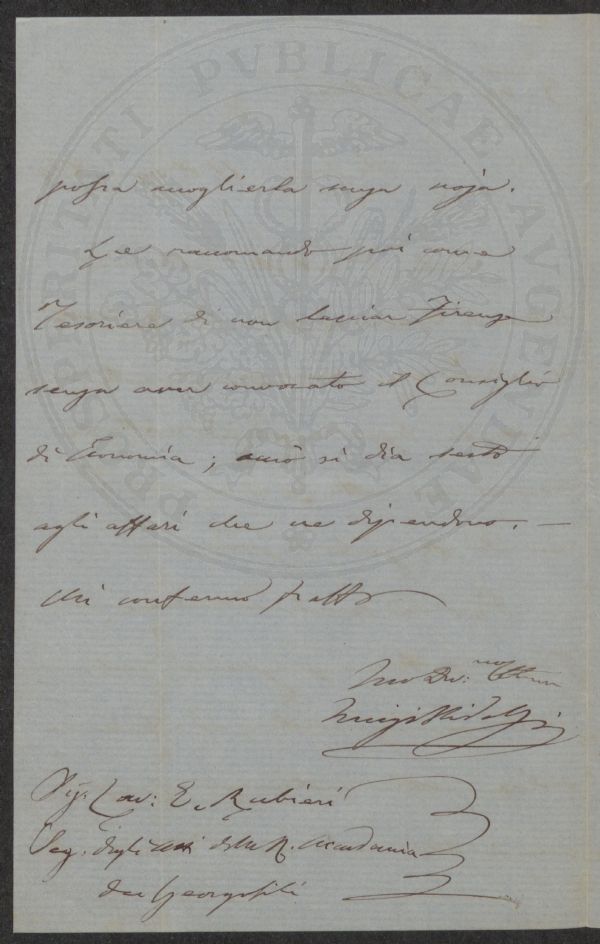 PROSPERITATI PVBLICAE AVGENDAE
possa accoglierla senza noja.
Le raccomando poi come
Tesoriere di non lasciar Firenze
senza aver convocato il Consiglio
di Economia; acciò si dia sesto
agli affari che ne dipendono. —
Mi confermo
Suo Dev:mo
Luigi Ridolfi
Sig: Cav: E. Rubieri
Seg. degli Atti della R. Accademia
dei Georgofili